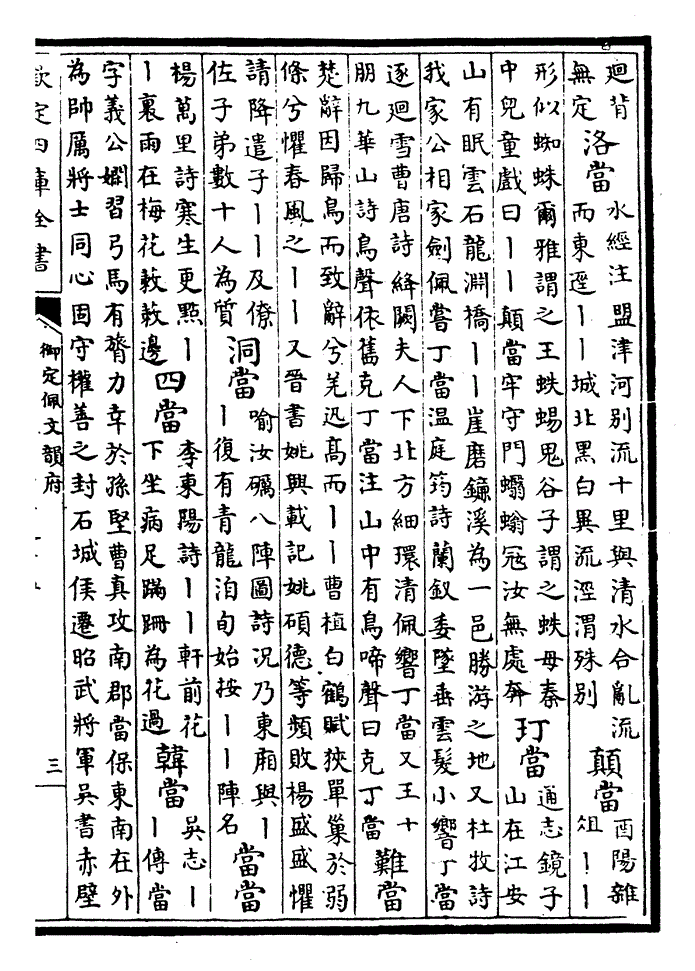 廻背
無定
洛當
水經注盟津河别流十里與清水合亂流
而東逕丨丨城北黑白異流涇渭殊别
顛當
酉陽雜
俎丨丨
形似蜘蛛爾雅謂之王蛈蜴鬼谷子謂之蛈母秦
中兒童戲曰丨丨顛當牢守門蠮螉冦汝無處奔
玎當
通志鏡子
山在江安
山有眠雲石龍淵橋丨丨崖磨鐮溪為一邑勝游之地又杜牧詩
我家公相家劍佩嘗丁當温庭筠詩蘭釵委墜垂雲髮小響丁當
逐廻雪曹唐詩絳闕夫人下北方細環清佩響丁當又王十
朋九華山詩鳥聲依舊克丁當注山中有鳥啼聲曰克丁當
難當
楚辭因歸鳥而致辭兮羌迅髙而丨丨曹植白鶴賦狹單巢於弱
條兮懼春風之丨丨又晉書姚興載記姚碩德等頻敗楊盛盛懼
請降遣子丨丨及僚
佐子弟數十人為質
洞當
喻汝礪八陣圖詩况乃東廂與丨
丨復有青龍洎旬始按丨丨陣名
當當
楊萬里詩寒生更點丨
丨裏雨在梅花蔌蔌邊
四當
李東陽詩丨丨軒前花
下坐病足蹣跚為花過
韓當
吳志丨
丨傳當
字義公嫻習弓馬有膂力幸於孫堅曹真攻南郡當保東南在外
為帥厲將士同心固守權善之封石城侯遷昭武將軍吳書赤壁
欽定四庫全書
御定佩文韻府
三